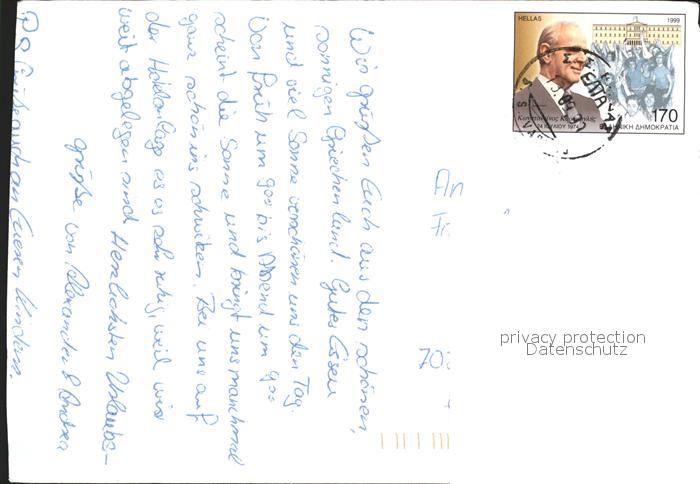 Wir grüßen Euch aus dem schönen,
sonnigen Griechenland. Gutes Essen
und viel Sonne verschönen uns den Tag.
Von früh um 9oo bis Abend um 9oo
scheint die Sonne und bringt uns manchmal
ganz schön ins schwitzen. Bei uns auf
der Hotelanlage es es sehr ruhig, weil wir
weit abgelegen sind. Herzlichsten Urlaubs-
grüße von Alexander & Andrea
PS Grüße auch an Euren Kindern.
HELLAS
1999
Κωνσταντίνος Καραμανλής
24 ΙΟΥΛΙΟΥ 1974
170
ΕΛΛΗΝΙΚΗ ΔΗΜΟΚΡΑΤΙΑ
An
privacy protection
Datenschutz